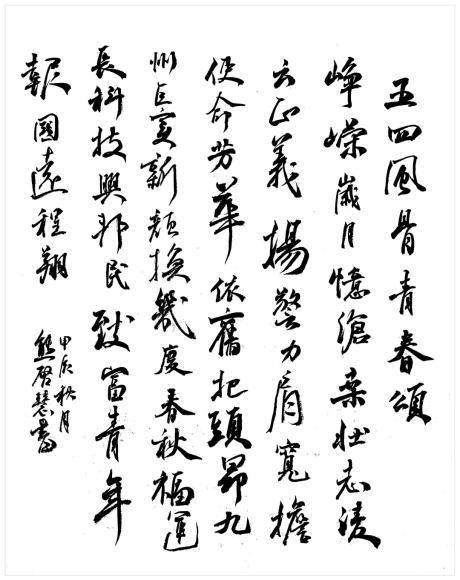 五四風骨青春頌
崢嶸歲月憶滄桑壯志凌
云正義揚警力肩寬擔
使命芳華依舊把頭昂九
州巨變新顏換幾度春秋福運
長科技興邦民致富青年
報國遠程翔
甲辰秋月
熊啓慧書